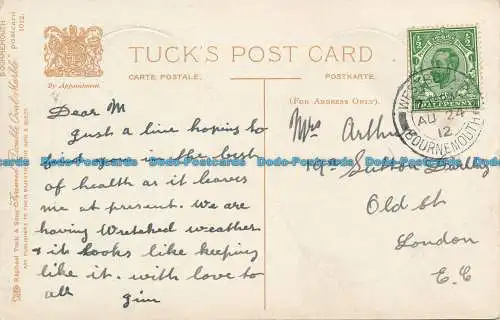 TUCK'S POST CARD
CARTE POSTALE.
POSTKARTE.
By Appointment.
(FOR ADDRESS ONLY).
BOURNEMOUTH
POSTCARD 1012.
Raphael Tuck & Sons'
Dear M
Just a line hoping to
find you in the best
of health as it leaves
me at present. We are
having Wretched weather
& it looks like keeping
like it. with love to
all Jim
Mrs Arthur
Sutton
Old St
London
E.C
AU 24
12
BOURNEMOUTH
HALFPENNY
Dado-Postcards.com